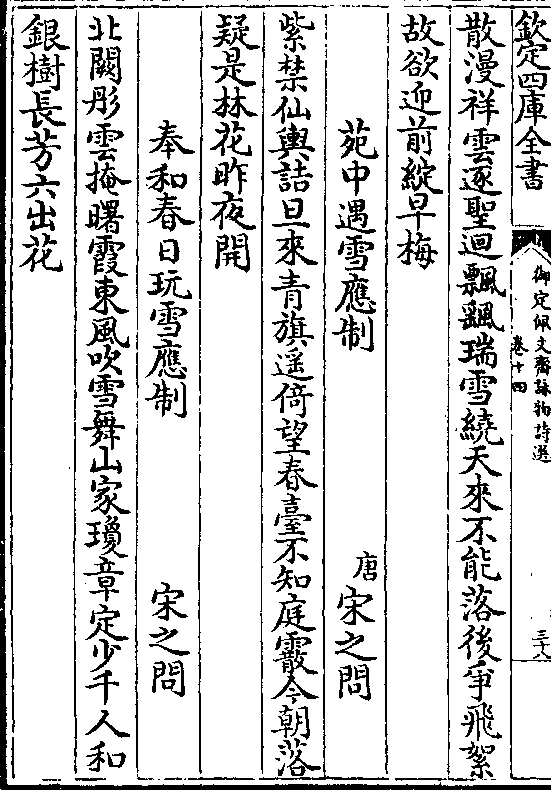 欽定四庫全書
御定佩文齋詠物詩選
卷十四
三十八
散漫祥雲逐聖迴飄颻瑞雪繞天來不能落後爭飛絮
故欲迎前綻早梅
苑中遇雪應制 唐宋之問
紫禁仙輿詰旦來青旗遥倚望春臺不知庭霰今朝落
疑是林花昨夜開
奉和春日玩雪應制 宋之問
北闕彤雲掩曙霞東風吹雪舞山家瓊章定少千人和
銀樹長芳六出花